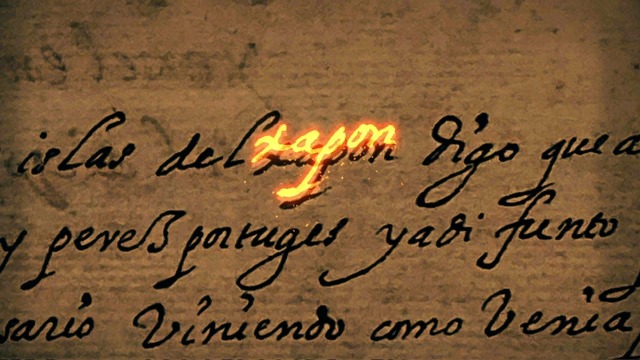 islas del xapon digo que a
y perez portuges yadifunto
sario Viniendo como Venia